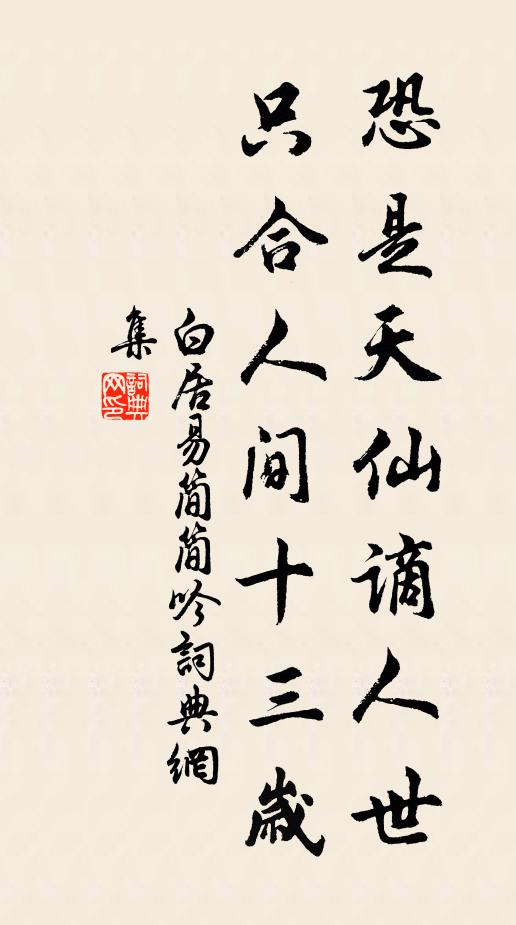 恐是天仙謫人世
只合人间十三歲
白居易简简吟詞典網
集
詞典
网印